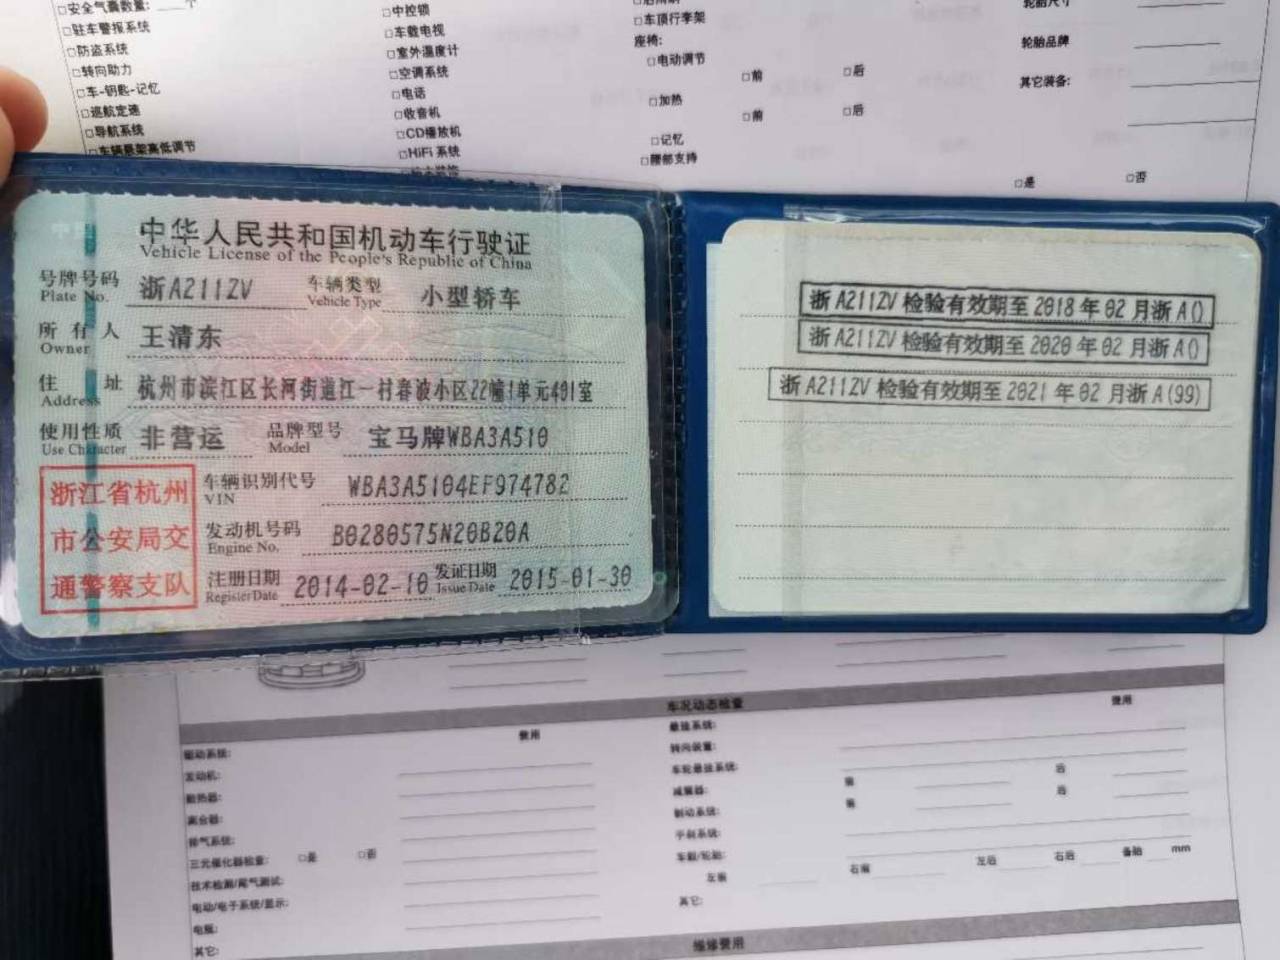 □安全气囊数量:____个
□驻车警报系统
□防盗系统
□转向助力
□车-钥匙-记忆
□巡航定速
□导航系统
□车辆悬架高低调节
□中控锁
□车载电视
□室外温度计
□空调系统
□电话
□收音机
□CD播放机
□HiFi 系统
□车顶行李架
座椅:
□电动调节
□前 □后
□加热
□前 □后
□记忆
□腰部支持
轮胎尺寸
轮胎品牌
其它装备:
□是 □否
中华人民共和国机动车行驶证
Vehicle License of the People's Republic of China
号牌号码 浙A211ZV 车辆类型 小型轿车
Plate No. Vehicle Type
所有人 王清东
Owner
住址 杭州市滨江区长河街道江一村春波小区22幢1单元401室
Address
使用性质 非营运 品牌型号 宝马牌WBA3A510
Use Character Model
浙江省杭州
市公安局交
通警察支队
车辆识别代号 WBA3A5104EF974782
VIN
发动机号码 B0280575N20B20A
Engine No.
注册日期 2014-02-10 发证日期 2015-01-30
Register Date Issue Date
浙A211ZV检验有效期至2018年02月浙A()
浙A211ZV检验有效期至2020年02月浙A()
浙A211ZV检验有效期至2021年02月浙A(99)
车况动态检查
费用 费用
驱动系统:
发动机:
散热器:
离合器:
排气系统:
三元催化器检查: □是 □否
技术检测/尾气测试:
电动/电子系统/显示:
电瓶:
其它:
悬挂系统:
转向装置:
车轮悬挂系统: 前 后
减震器: 前 后
制动系统:
手刹系统:
车毂/轮胎:
左前 右前 左后 右后 备胎 mm
其它:
维修费用